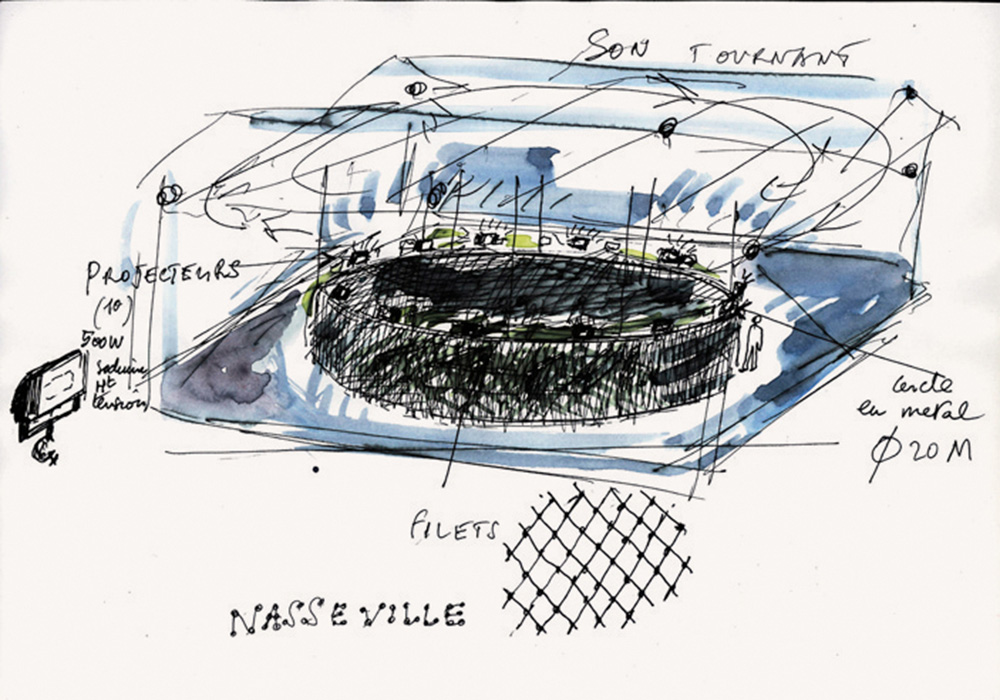 SON TOURNANT
PROJECTEURS
(10)
500W
Sodium
Ht
tension
cercle
en metal
Ø 20 M
FILETS
NASSE VILLE